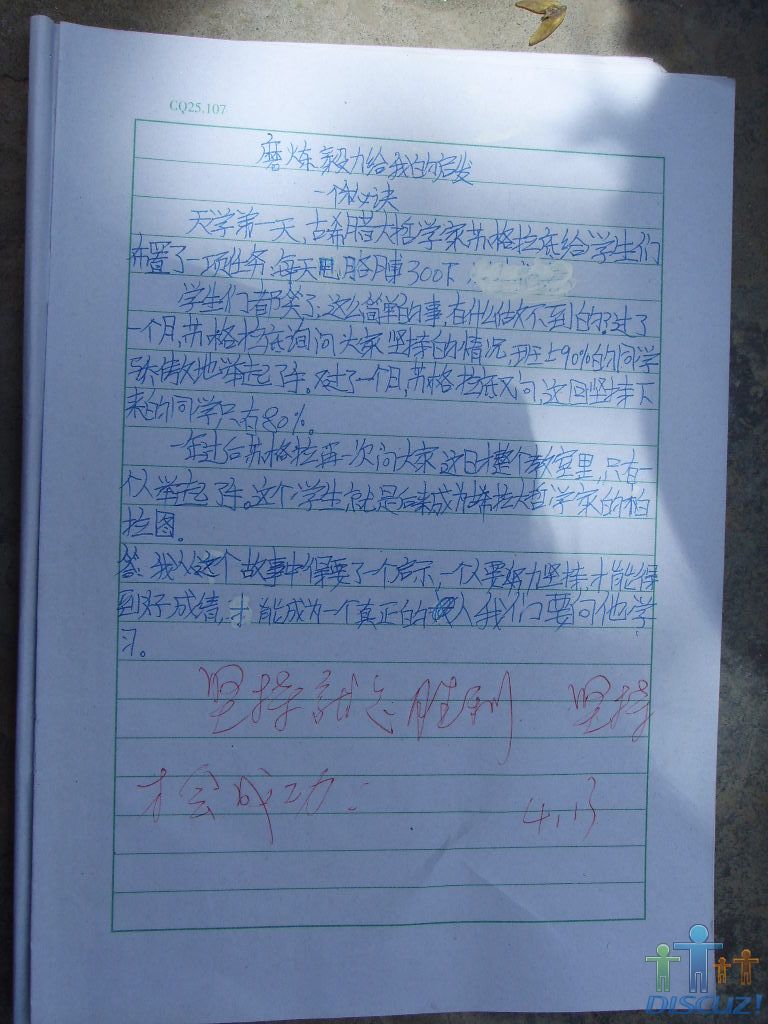 CQ25.107
磨炼毅力给我的启发
一个秘诀
天学第一天,古希腊大哲学家苏格拉底给学生们
布置了一项任务,每天甩胳膊300下
学生们都笑了,这么简单的事,有什么做不到的?过了
一个月,苏格拉底询问大家坚持的情况,班上90%的同学
骄傲地举起了手。又过了一个月,苏格拉底又问,这回坚持下
来的同学只有80%。
一年过后苏格拉再一次问大家这日才整个教室里,只有一
个人举起了手。这个学生就是后来成为希拉大哲学家的柏
拉图。
我从这个故事中得要了一个启示,一个人要努力坚持,才能得
到好成绩,才能成为一个真正的人我们要向他学
习。
坚持就是胜利 坚持
才会成功!
4.13
DISCUZ!